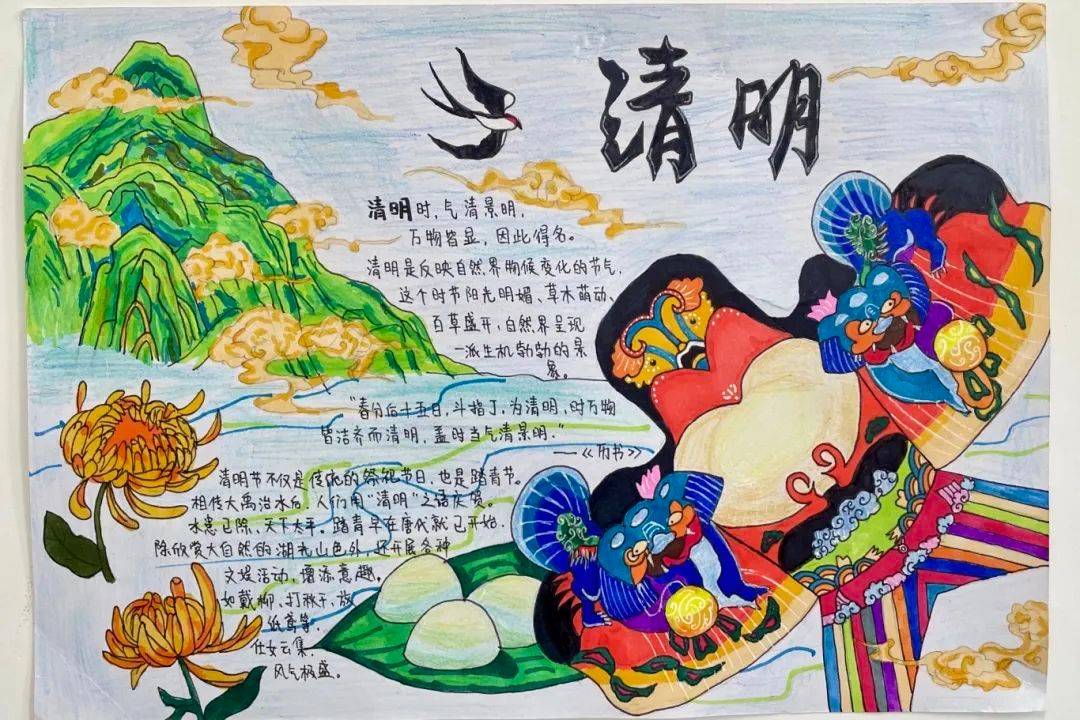 清明
清明时,气清景明,
万物皆显,因此得名。
清明是反映自然界物候变化的节气,
这个时节阳光明媚、草木萌动、
百草盛开,自然界呈现
一派生机勃勃的景
象。
"春分后十五日,斗指丁,为清明,时万物
皆洁齐而清明,盖时当气清景明。"
——《历书》
清明节不仅是传统的祭祀节日,也是踏青节。
相传大禹治水后,人们用"清明"之语庆贺
水患已除,天下太平。踏青早在唐代就已开始,
除欣赏大自然的湖光山色外,还开展各种
文娱活动,增添意趣。
如戴柳、打秋千、放
纸鸢等,
仕女云集,
风气极盛。